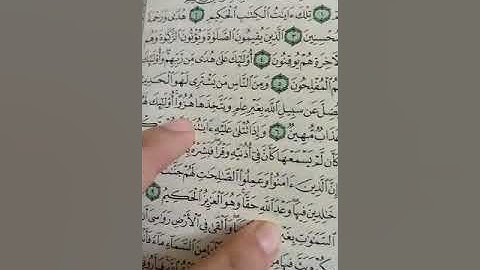 ١ تِلۡكَ ءَايَٰتُ ٱلۡكِتَٰبِ ٱلۡحَكِيمِ ٢ هُدٗى
٣ ٱلَّذِينَ يُقِيمُونَ ٱلصَّلَوٰةَ وَيُؤۡتُونَ ٱلزَّكَوٰةَ وَهُم
هُمۡ يُوقِنُونَ ٤ أُوْلَٰٓئِكَ عَلَىٰ هُدٗى مِّن رَّبِّهِمۡۖ وَأُوْلَٰٓئِكَ
ٱلۡمُفۡلِحُونَ ٥ وَمِنَ ٱلنَّاسِ مَن يَشۡتَرِي لَهۡوَ
عَن سَبِيلِ ٱللَّهِ بِغَيۡرِ عِلۡمٖ وَيَتَّخِذَهَا هُزُوًاۚ أُوْلَٰٓئِكَ
مُّهِينٞ ٦ وَإِذَا تُتۡلَىٰ عَلَيۡهِ
كَأَن لَّمۡ يَسۡمَعۡهَا كَأَنَّ فِيٓ أُذُنَيۡهِ وَقۡرٗاۖ فَبَشِّرۡهُ
إِنَّ ٱلَّذِينَ ءَامَنُواْ وَعَمِلُواْ ٱلصَّٰلِحَٰتِ لَهُمۡ
خَٰلِدِينَ فِيهَاۖ وَعۡدَ ٱللَّهِ حَقّٗاۚ وَهُوَ ٱلۡعَزِيزُ ٱلۡحَكِيمُ
ٱلسَّمَٰوَٰتِ وَأَلۡقَىٰ فِي ٱلۡأَرۡضِ رَوَٰسِيَ
مِنَ ٱلسَّمَآءِ مَآءٗ